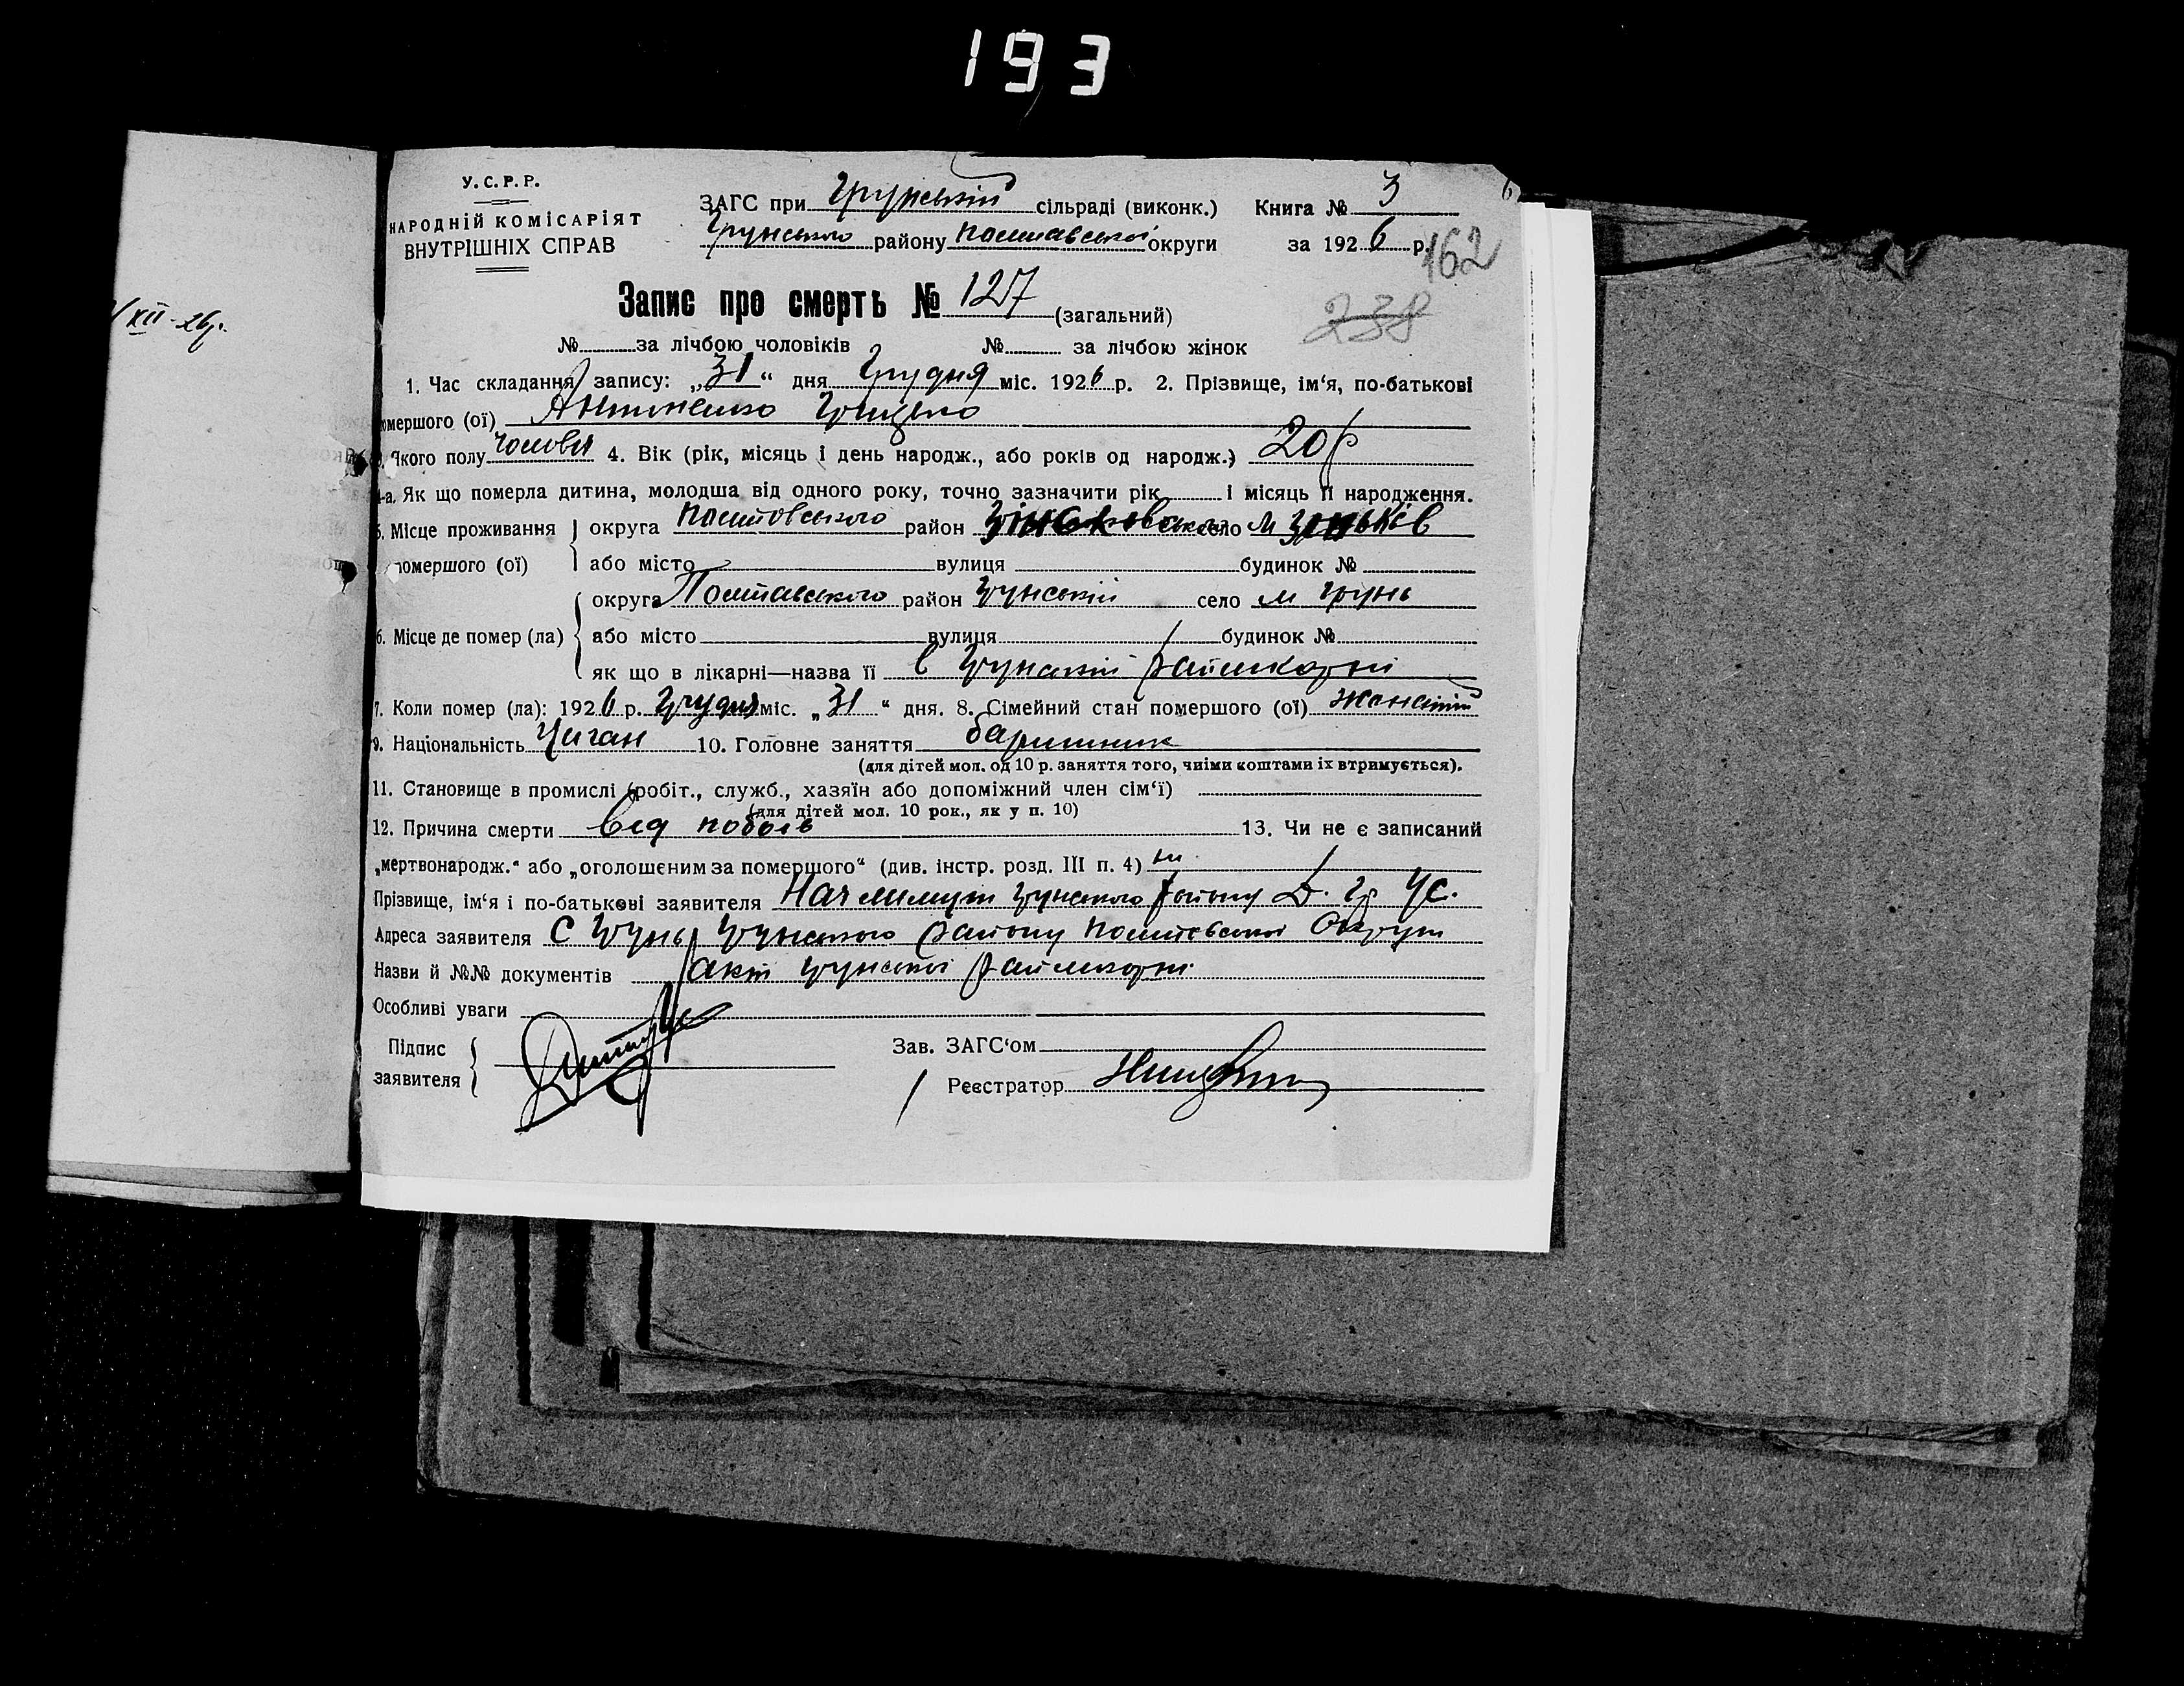 193
У. С. Р. Р.
НАРОДНІЙ КОМІСАРІЯТ
ВНУТРІШНІХ СПРАВ
ЗАГС при Грунській сільраді (виконк.) Книга № 3
Грунського району Полтавської округи за 1926 р.
162
Запис про смерть № 127 (загальний)
238
XII-26р.
№ за лічбою чоловіків № за лічбою жінок
1. Час складання запису: „31“ дня Грудня міс. 1926 р. 2. Прізвище, ім‘я, по-батькові
помершого (ої) Антоненко Грицько
3. Якого полу чоловіч 4. Вік (рік, місяць і день народж., або років од народж.) 20 р
4-а. Як що померла дитина, молодша від одного року, точно зазначити рік і місяць її народження.
5. Місце проживання помершого (ої) округа Полтавського район Зіньковського село м Зіньків
або місто вулиця будинок №
округа Полтавського район Грунській село м Грунь
6. Місце де помер (ла) або місто вулиця будинок №
як що в лікарні—назва її в Грунській райлікарні
7. Коли помер (ла): 1926 р. Грудня міс. „31“ дня. 8. Сімейний стан помершого (ої) жонатий
9. Національність Циган 10. Головне заняття баришник
(для дітей мол. од 10 р. заняття того, чиїми коштами їх втримується).
11. Становище в промислі (робіт., служб., хазяїн або допоміжний член сім‘ї)
(для дітей мол. 10 рок., як у п. 10)
12. Причина смерти від побоїв 13. Чи не є записаний
„мертвонародж.“ або „оголошеним за помершого“ (див. інстр. розд. III п. 4) ні
Прізвище, ім‘я і по-батькові заявителя Начміліції Грунського району Д. Гр. Ус.
Адреса заявителя с Грунь Грунського району Полтавської Округи
Назви й №№ документів акт Грунської райлікарні
Особливі уваги
Підпис
заявителя
Зав. ЗАГС‘ом
Реєстратор